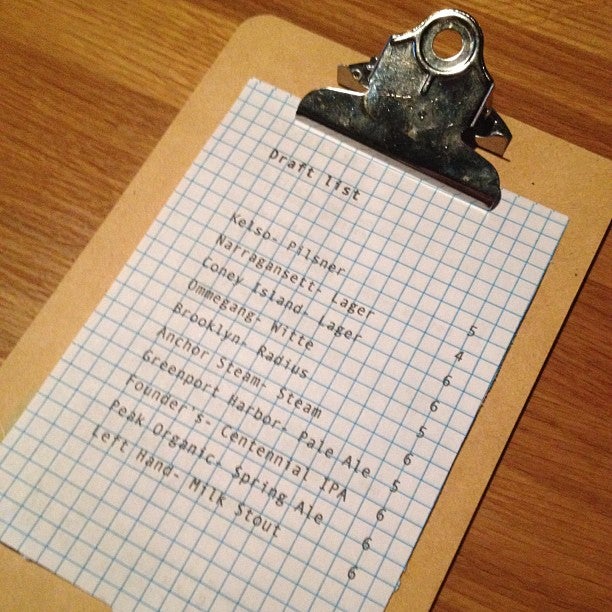 Draft list
Kelso- Pilsner 5
Narragansett- Lager 4
Coney Island- Lager 6
Ommegang- Witte 6
Brooklyn- Radius 5
Anchor Steam- Steam 6
Greenport Harbor- Pale Ale 5
Founder's- Centennial IPA 6
Peak Organic- Spring Ale 6
Left Hand- Milk Stout 6